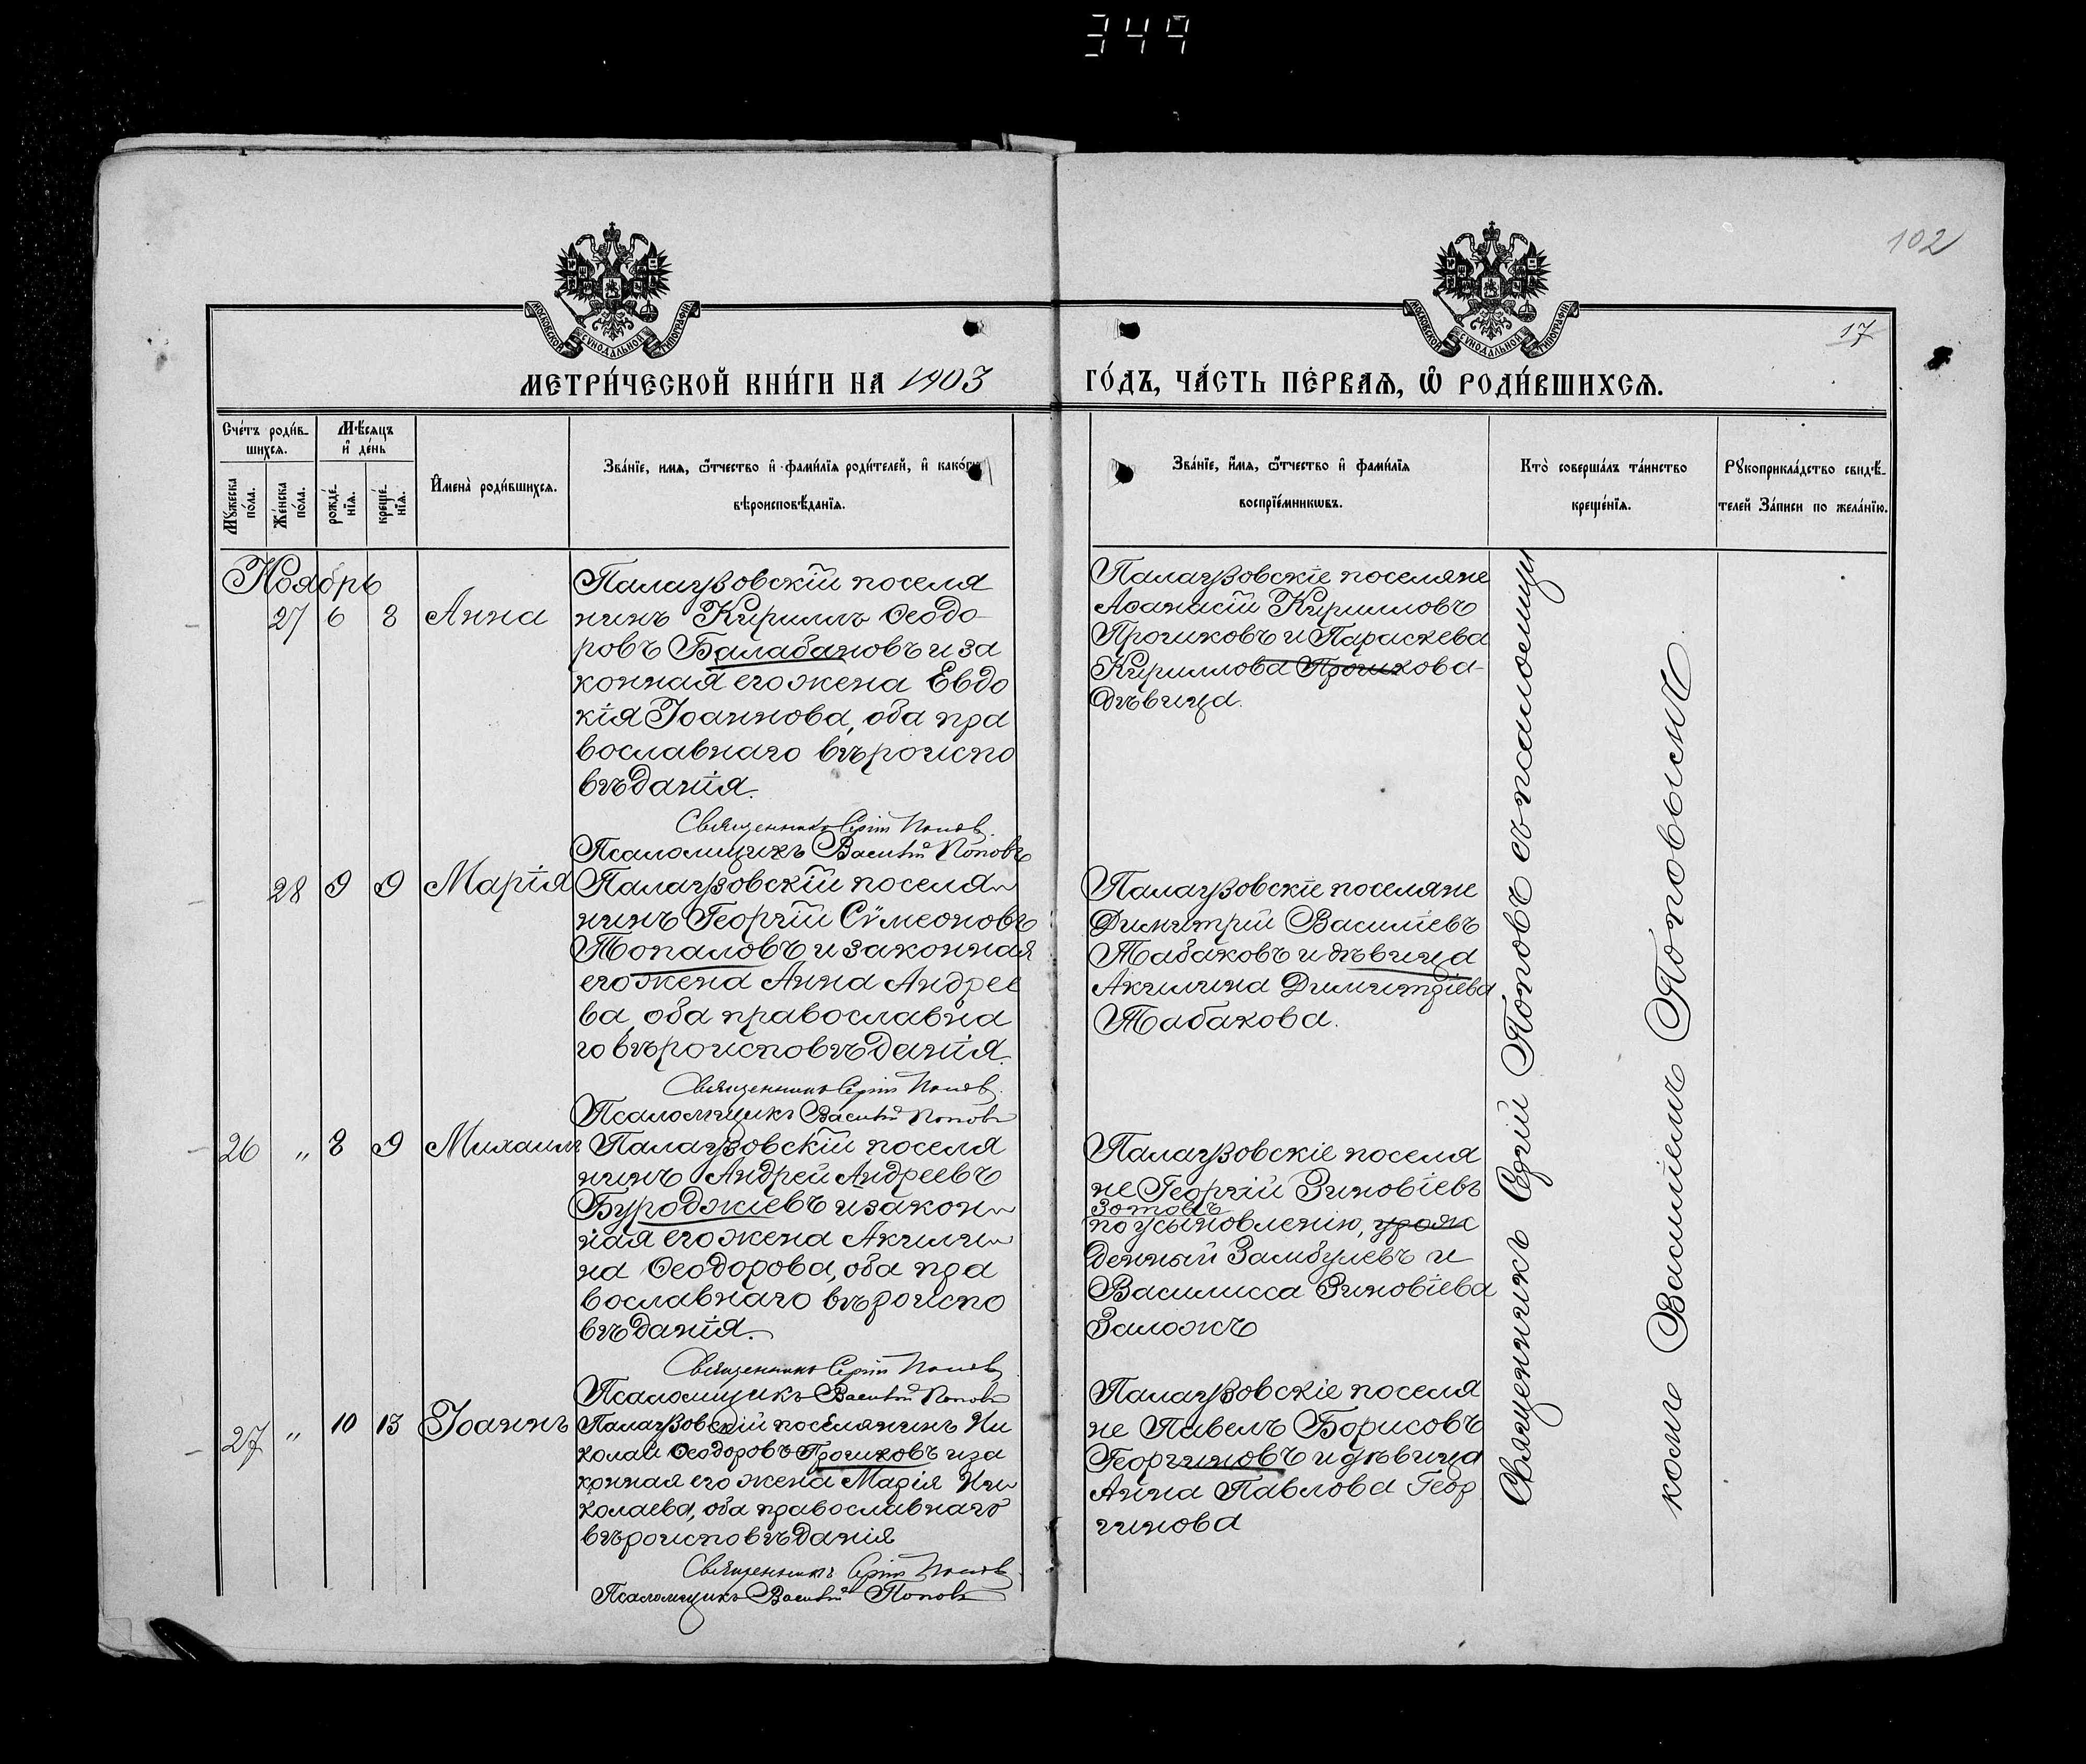 349
102
17
МОСКОВСКОЙ СУНОДАЛЬНОЙ ТИПОГРАФІИ
МОСКОВСКОЙ СУНОДАЛЬНОЙ ТИПОГРАФІИ
МЕТРИ́ЧЕСКОЙ КНИ́ГИ НА 1903
ГО́ДЪ, ЧА́СТЬ ПЕ́РВАѦ, Ѽ РОДИ́ВШИХСѦ.
Сче́тъ роди́в-
шихсѧ.
Мѣ́сѧцъ
и҆ де́нь
Мꙋ́жеска
по́ла.
Же́нска
по́ла.
рожде́-
нїѧ.
креще́-
нїѧ.
И҆мена̀ роди́вшихсѧ.
Зва́нїе, имѧ, ѻ҆́тчество и҆ фами́лїѧ роди́телей, и҆ како́гѡ
вѣроисповѣ́данїѧ.
Зва́нїе, и҆́мѧ, ѻ҆́тчество и҆ фами́лїѧ
воспрїе́мникѡвъ.
Кто̀ соверша́лъ та́инство
креще́нїѧ.
Рꙋкоприкла́дство свидѣ́-
телей За́писи по жела́нїю.
Ноябрь
27 6 8 Анна
Палаузовскій поселя
нинъ Кириллъ Ѳеодо-
ровъ Балабановъ и за
конная его жена Евдо
кія Іоаннова, оба пра
вославнаго вѣроиспо
вѣданія.
Священникъ Сергій Поповъ.
Псаломщикъ Василій Поповъ
Палаузовскіе поселяне
Аѳанасій Кирилловъ
Прошковъ и Параскева
Кириллова Прошкова-
дѣвица.
28 9 9 Марія
Палаузовскій поселя-
нинъ Георгій Сѵмеоновъ
Топаловъ и законная
его жена Анна Андрее
ва, оба православна
го вѣроисповѣданія.
Священникъ Сергій Поповъ.
Псаломщикъ Василій Поповъ
Палаузовскіе поселяне
Димитрій Василіевъ
Табаковъ и дѣвица
Акилина Димитріева
Табакова.
26 " 8 9 Михаилъ
Палаузовскій поселя
нинъ Андрей Андреевъ
Бурджіевъ и закон-
ная его жена Акили-
на Ѳеодорова, оба пра
вославнаго вѣроиспо
вѣданія.
Священникъ Сергій Поповъ
Псаломщикъ Василій Поповъ
Палаузовскіе поселя
не Георгій Зиновіевъ
Зотовъ
по усыновленію, урож
денный Замбулевъ и
Василисса Зиновіева
27 " 10 13 Іоаннъ
Палаузовскій поселянинъ Ни
колай Ѳеодоровъ Прошковъ и за
конная его жена Марія Ни-
колаева, оба православнаго
вѣроисповѣданія
Священникъ Сергій Поповъ.
Псаломщикъ Василій Поповъ
Палаузовскіе поселя
не Павелъ Борисовъ
Георгиновъ и дѣвица
Анна Павлова Геор
гинова
Священникъ Сергій Поповъ съ псаломщи
комъ Василіемъ Поповымъ.